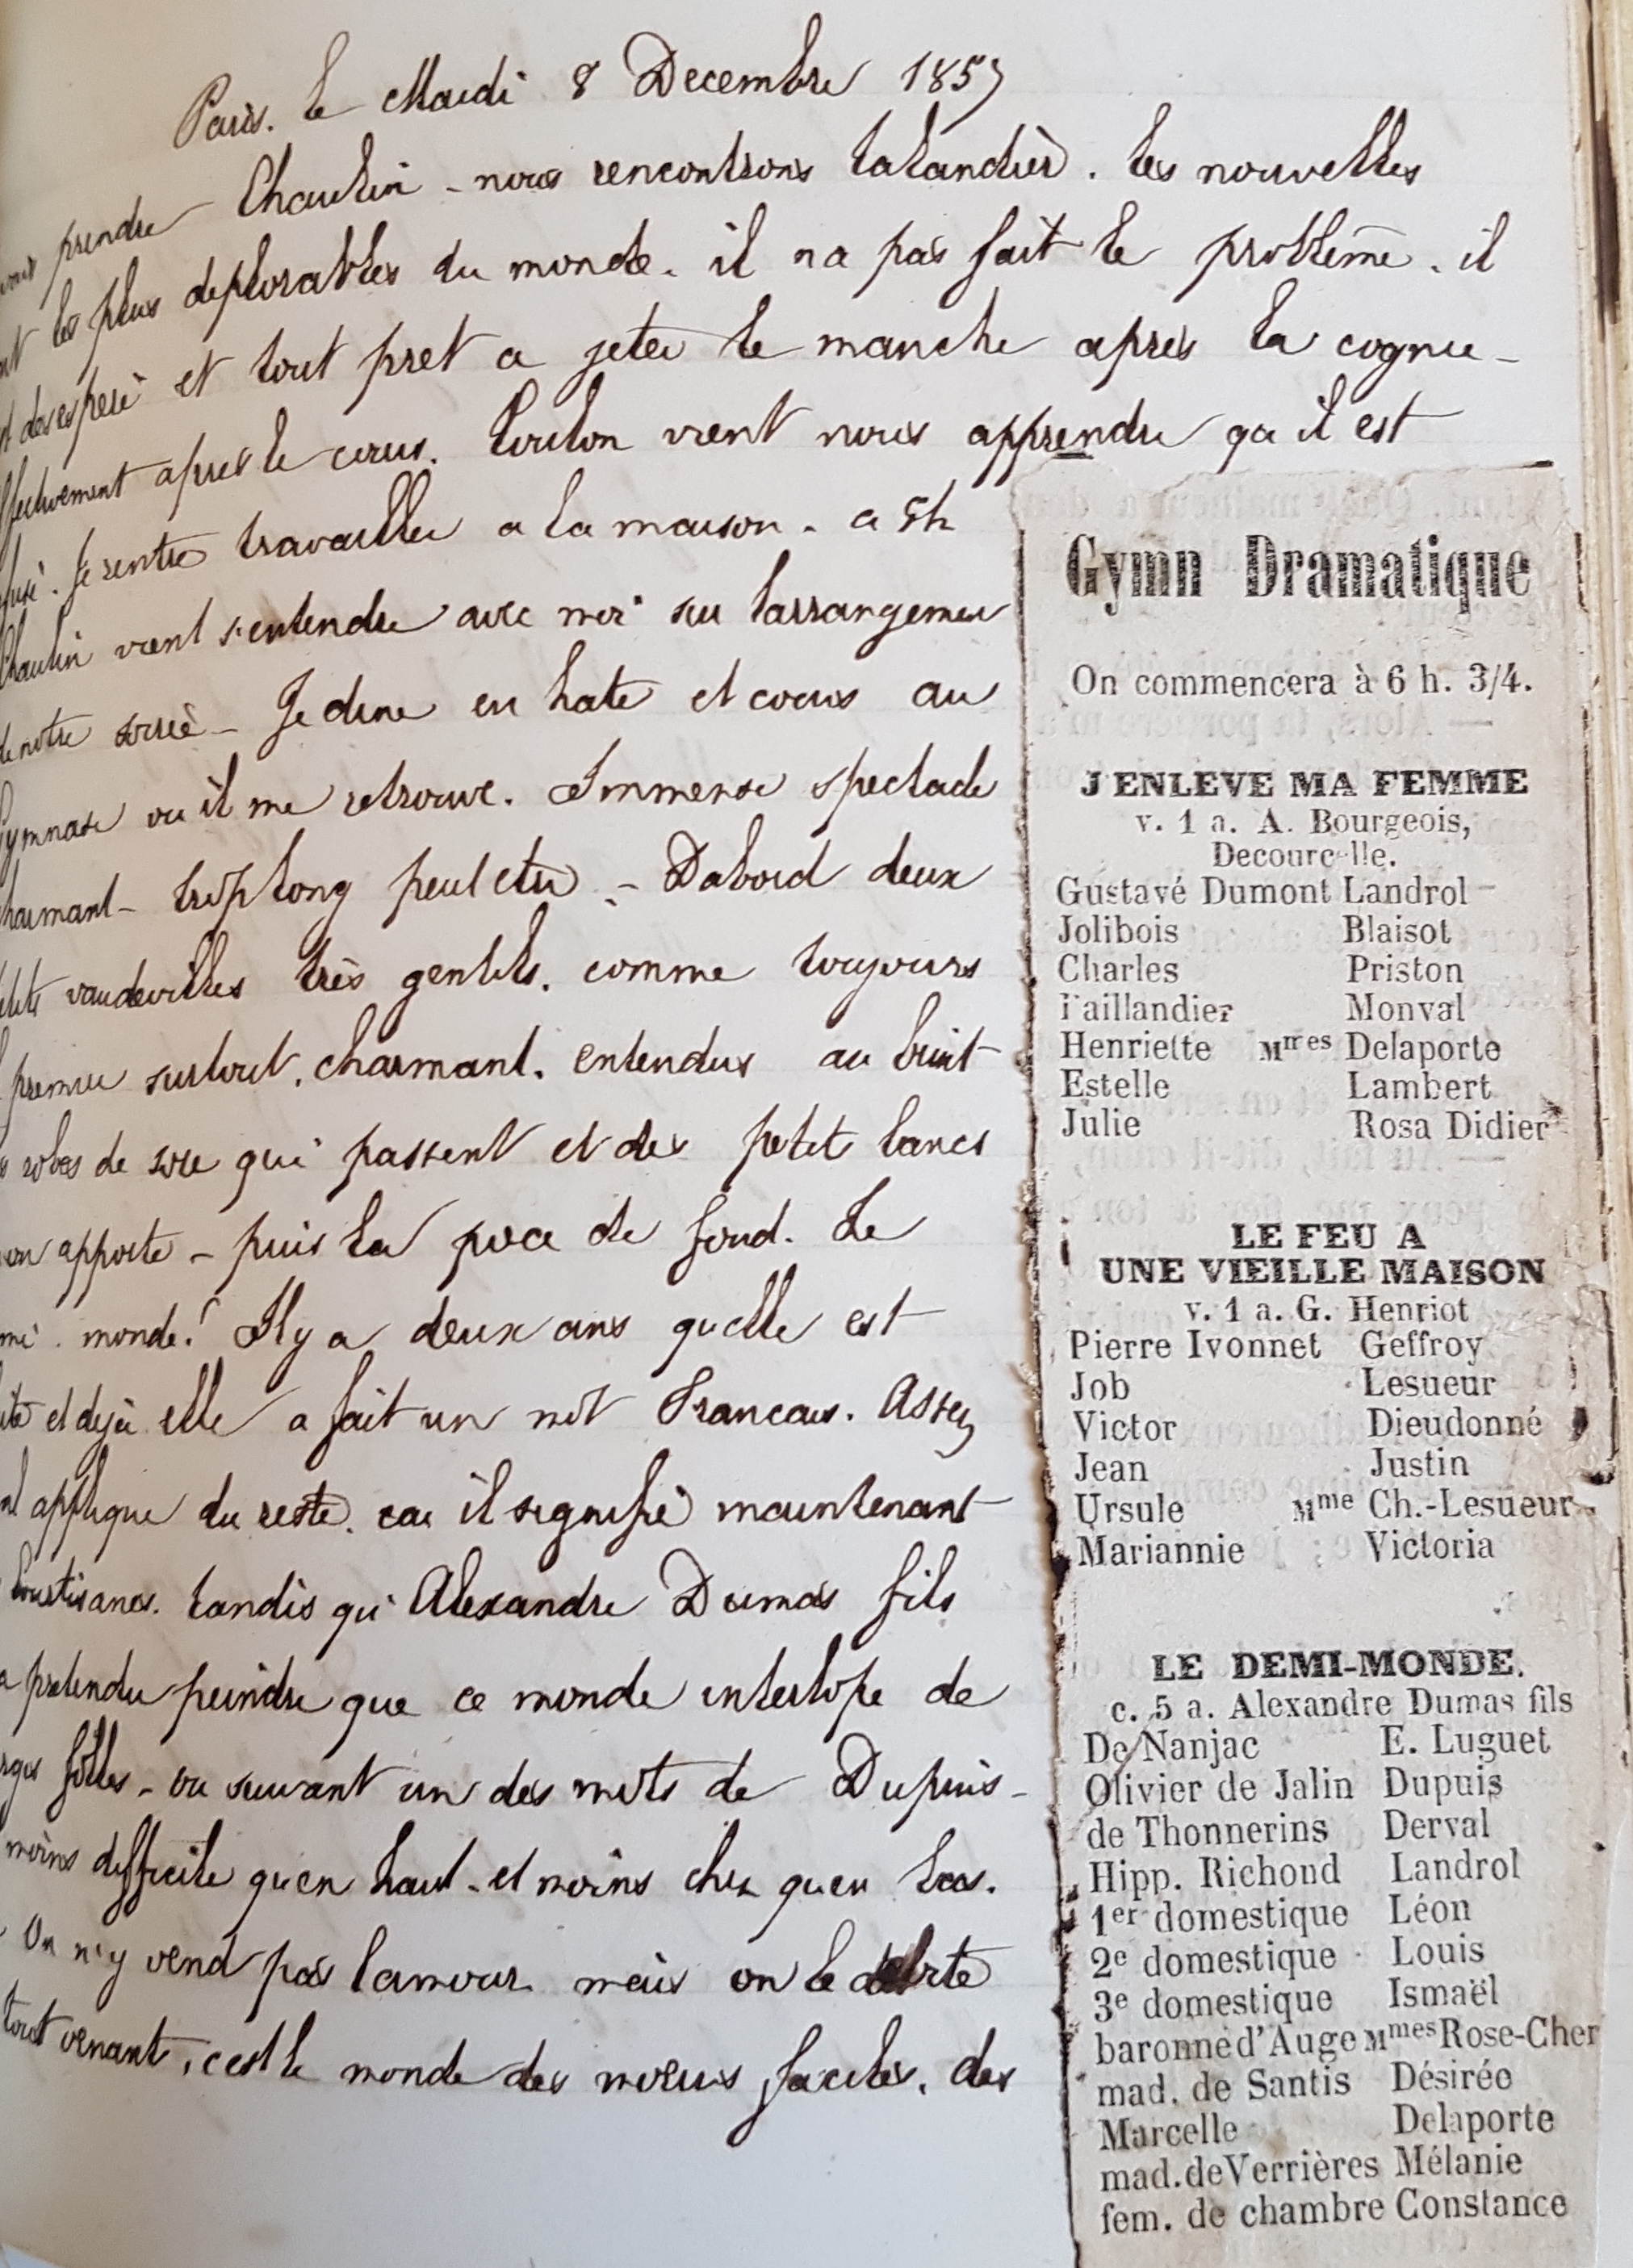 Paris. le Mardi 8 Decembre 1857
prendre Chaulin - nous rencontrons Lalandier. les nouvelles
les plus deplorables du monde. il na pas fait le problême. il
desesperé et tout pret a jeter le manche apres la cognee -
effectivement apres le cours. Coulon vient nous apprendre qu il est
Je rentre travailler a la maison. a 5h
Chaulin vient s'entendre avec moi sur larrangemen
de notre soiree - Je dine en hate et cours au
Gymnase ou il me retrouve. Immense spectacle
charmant - trop long peut etre - Dabord deux
petits vaudevilles très gentils. comme toujours
premier surtout. charmant. entendus au bruit
robes de soie qui passent et des petits bancs
on apporte - puis la piece de fond. Le
mi. monde! Il y a deux ans quelle est
et dejà elle a fait un mot Francais. Assez
mal applique du reste. car il signifie maintenant
Courtisanes. tandis qu' Alexandre Dumas fils
a pretendu peindre que ce monde interlope de
folles - ou suivant un des mots de Dupuis -
moins difficile qu'en haut - et moins cher qu'en bas.
On n'y vend pas lamour mais on le
tout venant. c'est le monde des moeurs faciles. des
Gymn Dramatique
On commencera à 6 h. 3/4.
J ENLEVE MA FEMME
v. 1 a. A. Bourgeois,
Decourcelle.
Gustavé Dumont Landrol
Jolibois Blaisot
Charles Priston
Taillandier Monval
Henriette Mmes Delaporte
Estelle Lambert
Julie Rosa Didier
LE FEU A
UNE VIEILLE MAISON
v. 1 a. G. Henriot
Pierre Ivonnet Geffroy
Job Lesueur
Victor Dieudonné
Jean Justin
Ursule Mme Ch.-Lesueur
Mariannie Victoria
LE DEMI-MONDE.
c. 5 a. Alexandre Dumas fils
De Nanjac E. Luguet
Olivier de Jalin Dupuis
de Thonnerins Derval
Hipp. Richond Landrol
1er domestique Léon
2e domestique Louis
3e domestique Ismaël
baronne d'Auge Mmes Rose-Cher
mad. de Santis Désirée
Marcelle Delaporte
mad. de Verrières Mélanie
fem. de chambre Constance